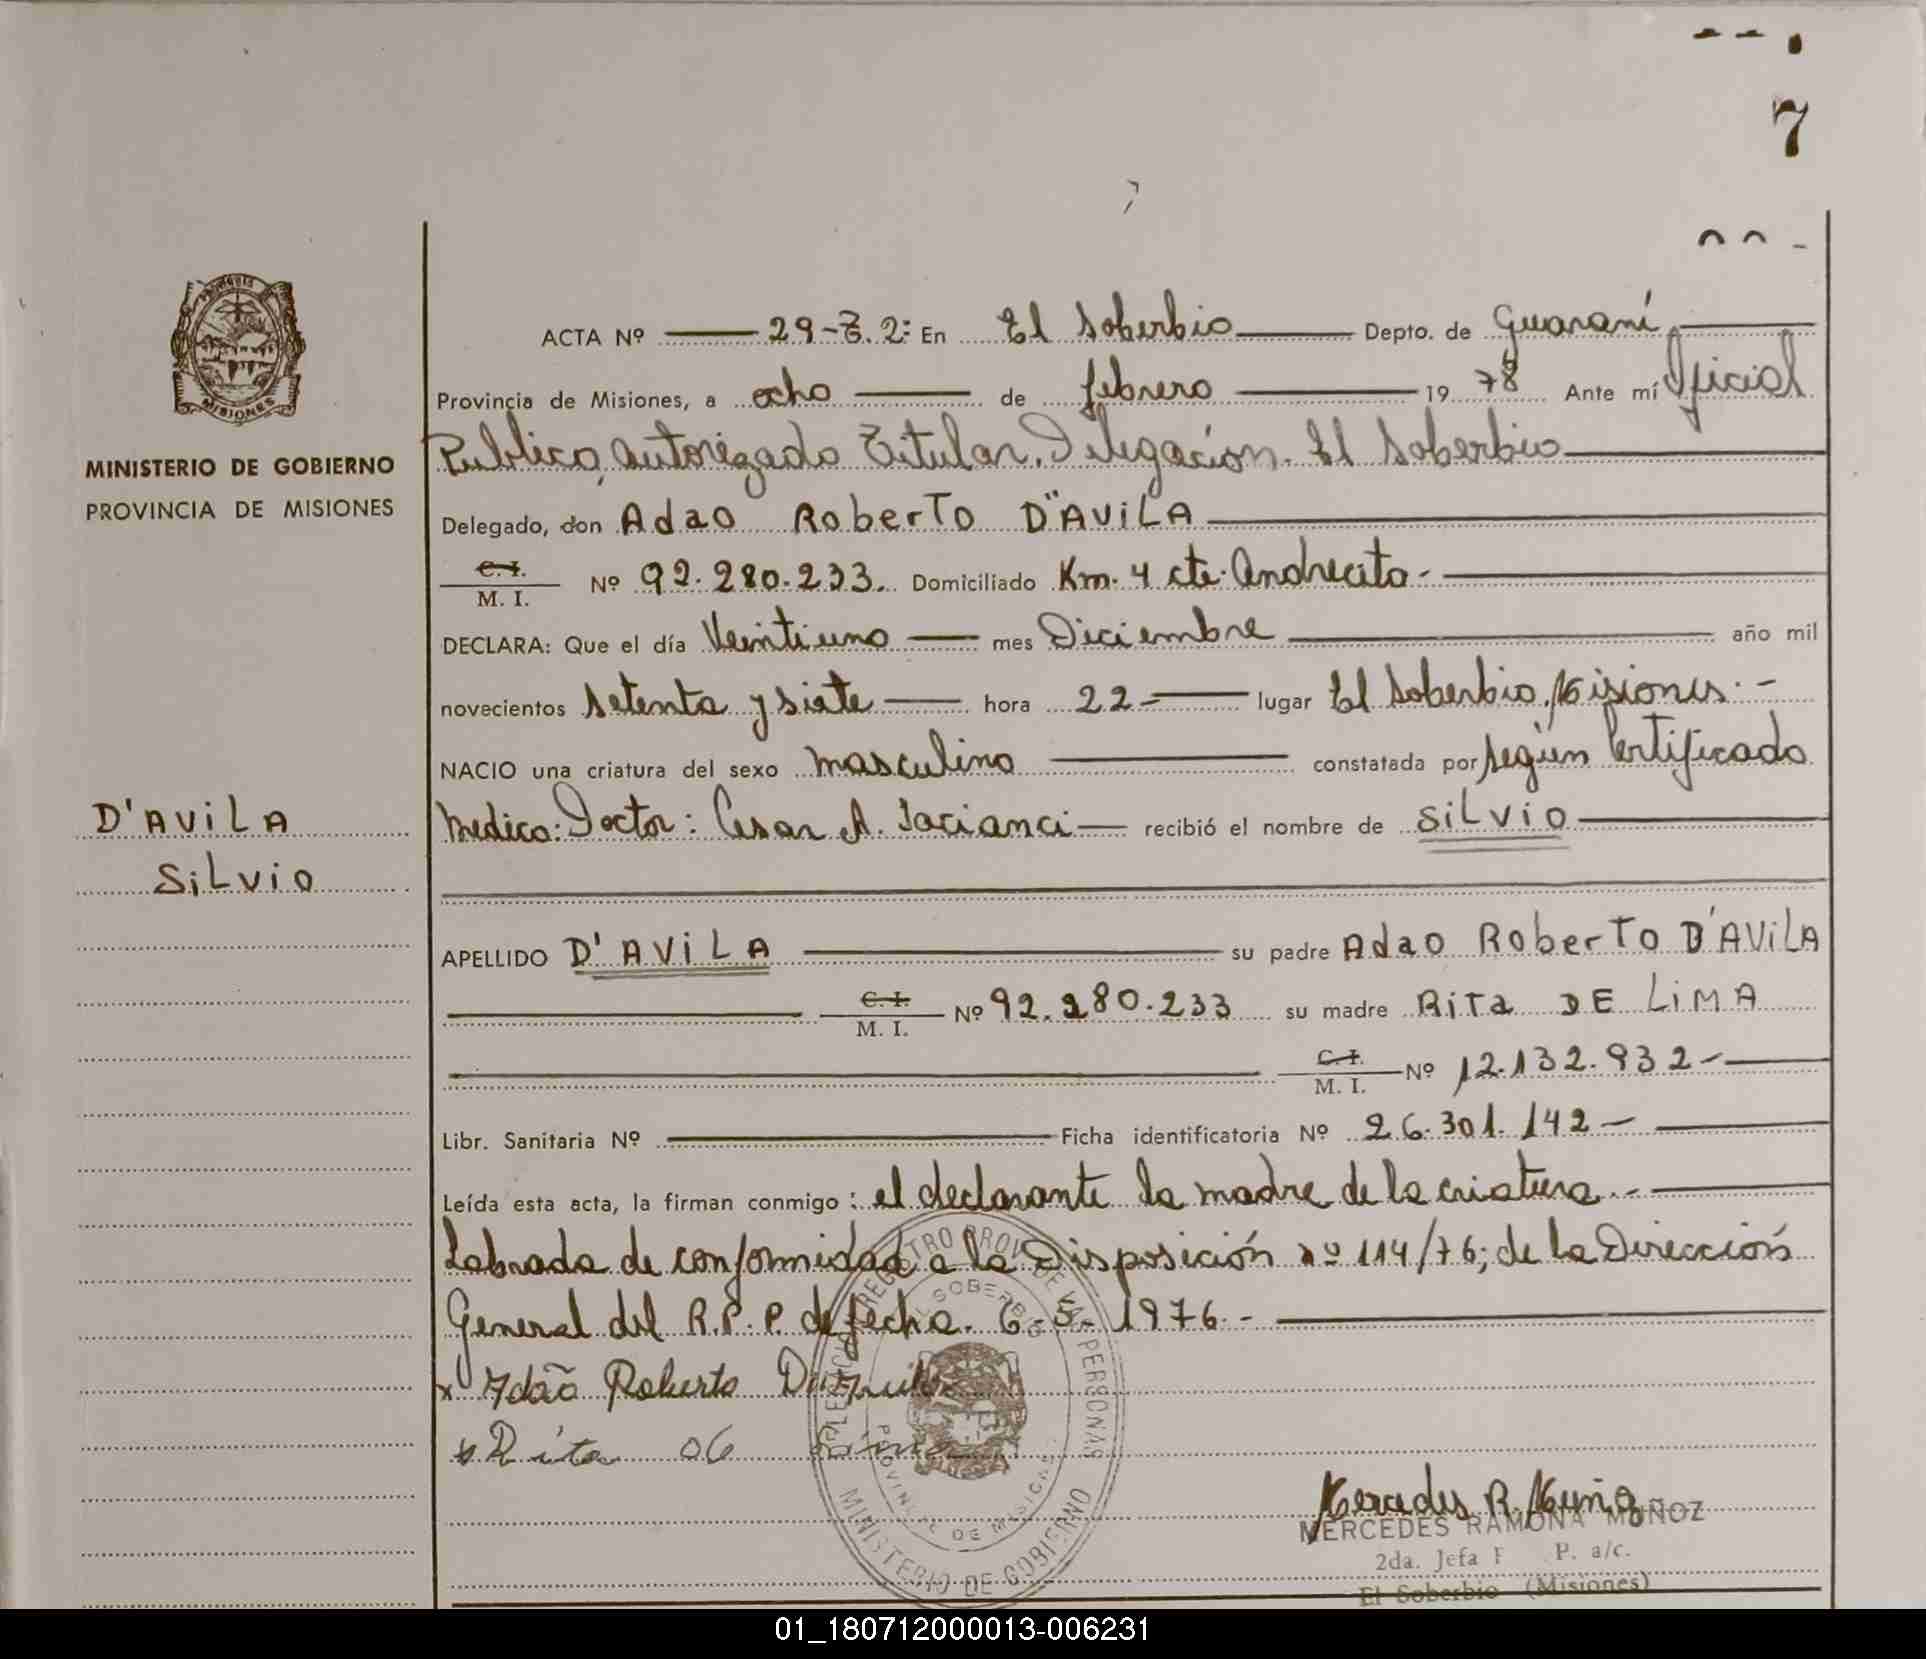 7
MISIONES
MINISTERIO DE GOBIERNO
PROVINCIA DE MISIONES
D'AViLA
SiLvio
ACTA Nº 29-T. 2: En El Soberbio Depto. de Guaraní
Provincia de Misiones, a ocho de febrero 19 78 Ante mí Oficial
Publico, autorizado Titular, Delegación. El Soberbio
Delegado, don Adao RoberTo D"AViLA
C. I.
M. I. Nº 92.280.233. Domiciliado Km. 4 cte. Andrecito-
DECLARA: Que el día Veintiuno mes Diciembre año mil
novecientos setenta y siete hora 22- lugar El Soberbio, Misiones.-
NACIO una criatura del sexo masculino constatada por según Certificado
Medico: Doctor: Cesar A. Jacianci recibió el nombre de SiLvio
APELLIDO D'AViLA su padre Adao RoberTo D'AViLA
C. I.
M. I. Nº 92.280.233 su madre RiTa DE LiMA
C. I.
M. I. Nº 12.132.932-
Libr. Sanitaria Nº Ficha identificatoria Nº 26.301.142-
Leída esta acta, la firman conmigo: el declarante la madre de la criatura.-
Labrada de conformidad a la Disposición nº 114/76; de la Dirección
General del R.P.P. de fecha. 6-5-1976.-
x Adão Roberto
x Rita
REGISTRO PROV. DE LAS PERSONAS
EL SOBERBIO
PROVINCIA DE MISIONES
MINISTERIO DE GOBIERNO
Mercedes R. Muñoz
MERCEDES RAMONA MUÑOZ
2da. Jefa P. a/c.
El Soberbio (Misiones)
01_180712000013-006231